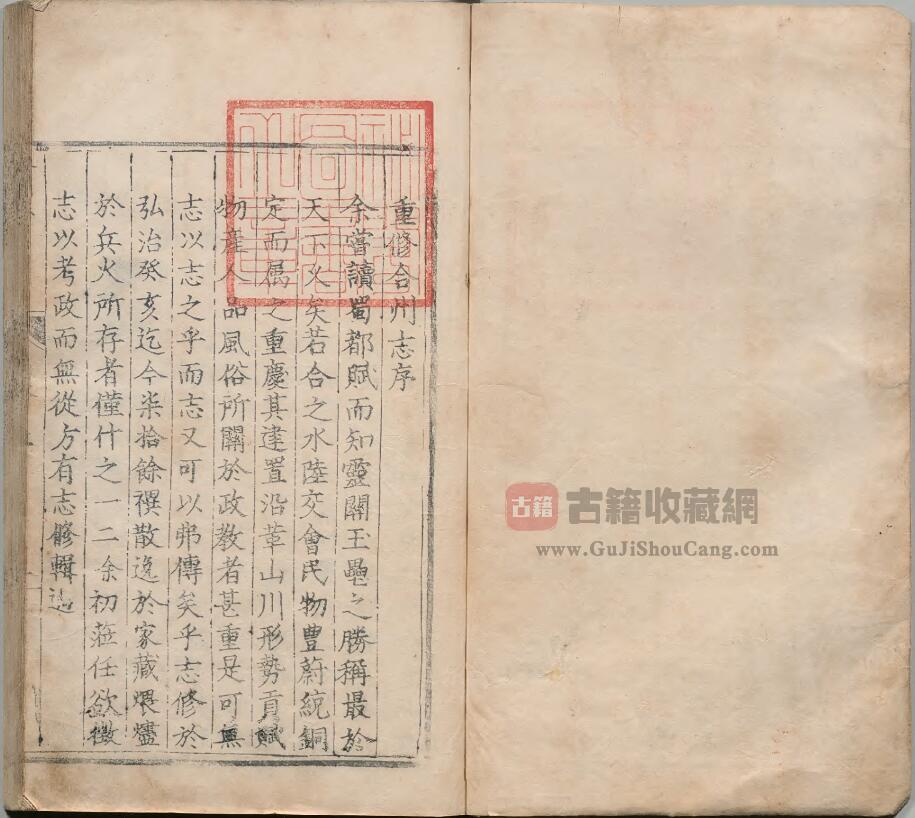 重修合州志序
余嘗讀蜀都賦而知靈關玉壘之勝稱最於
天下久矣若合之水陸交會民物豊蔚統銅
定而属之重慶其建置沿革山川形勢貢賦
物產人品風俗所關於政教者甚重是可無
志以志之乎而志又可以弗傳矣乎志修於
弘治癸亥迄今柒拾餘禩散逸於家藏煨燼
於兵火所存者僅什之一二余初蒞任欲徵
志以考政而無從方有志修輯
古籍
古籍收藏網
www.GuJiShouCang.com